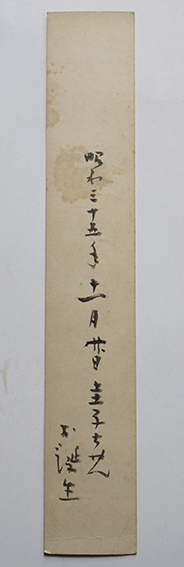 昭和三十五年十一月廿日圭子ちゃん
お誕生